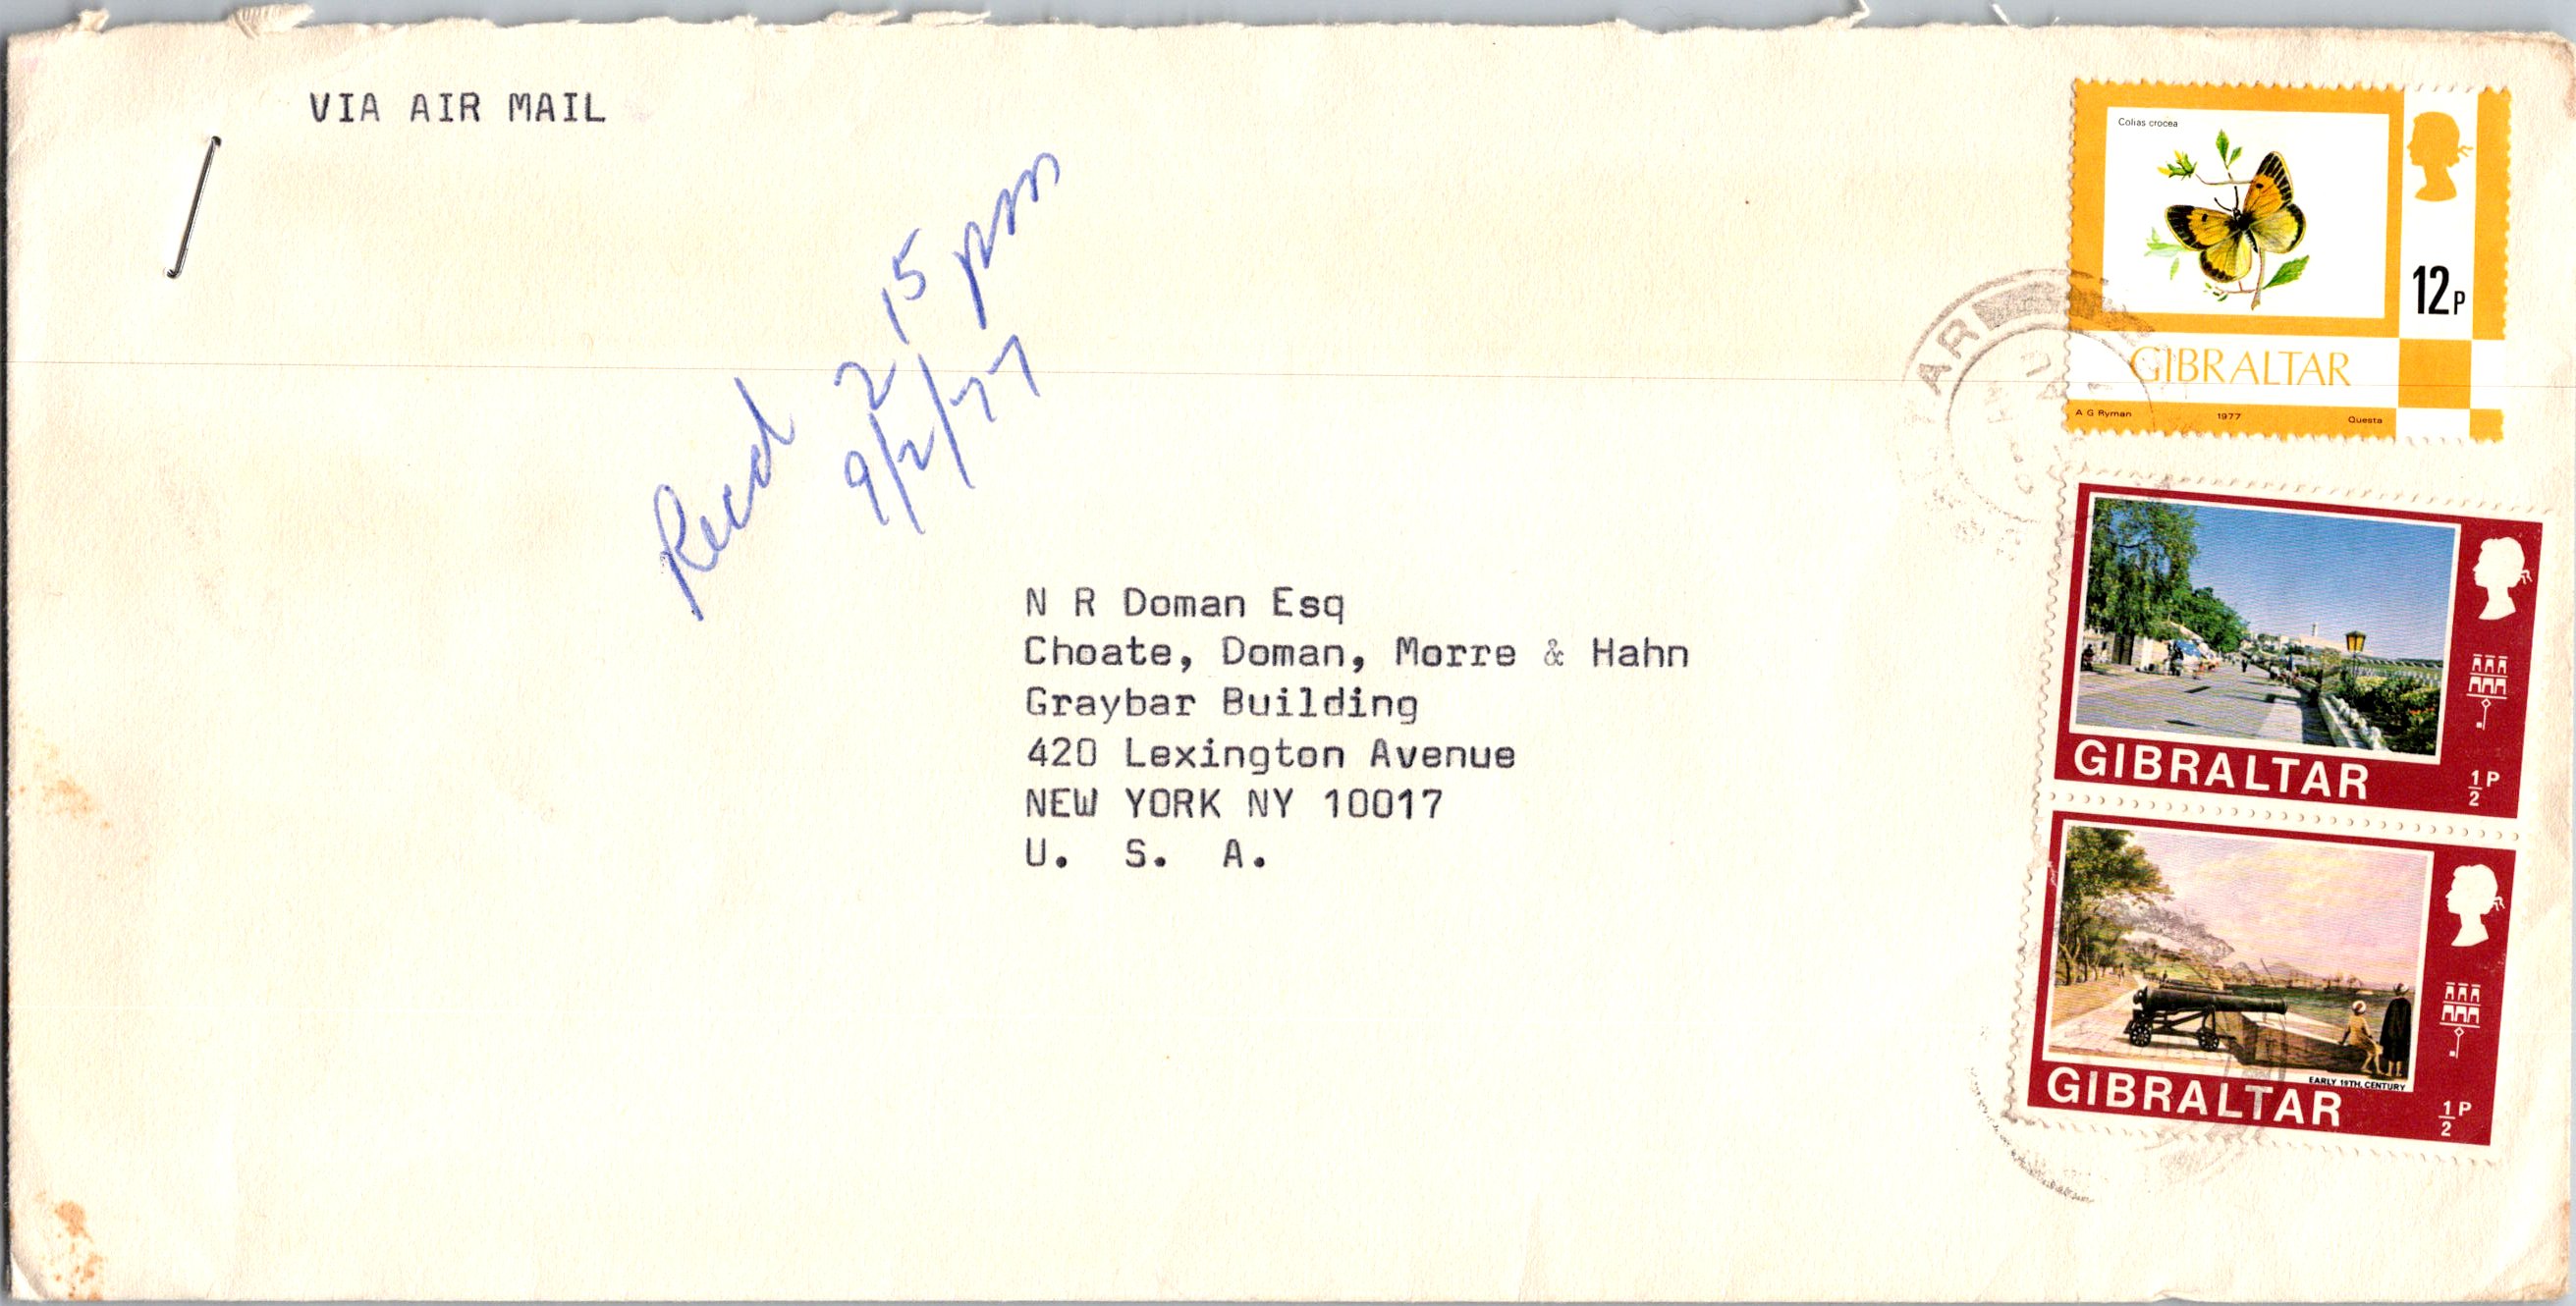 VIA AIR MAIL
Recd 2 15 pm
9/2/77
N R Doman Esq
Choate, Doman, Morre & Hahn
Graybar Building
420 Lexington Avenue
NEW YORK NY 10017
U. S. A.
Colias crocea
12P
GIBRALTAR
A G Ryman 1977 Questa
GIBRALTAR
½P
EARLY 19TH. CENTURY
GIBRALTAR
½P